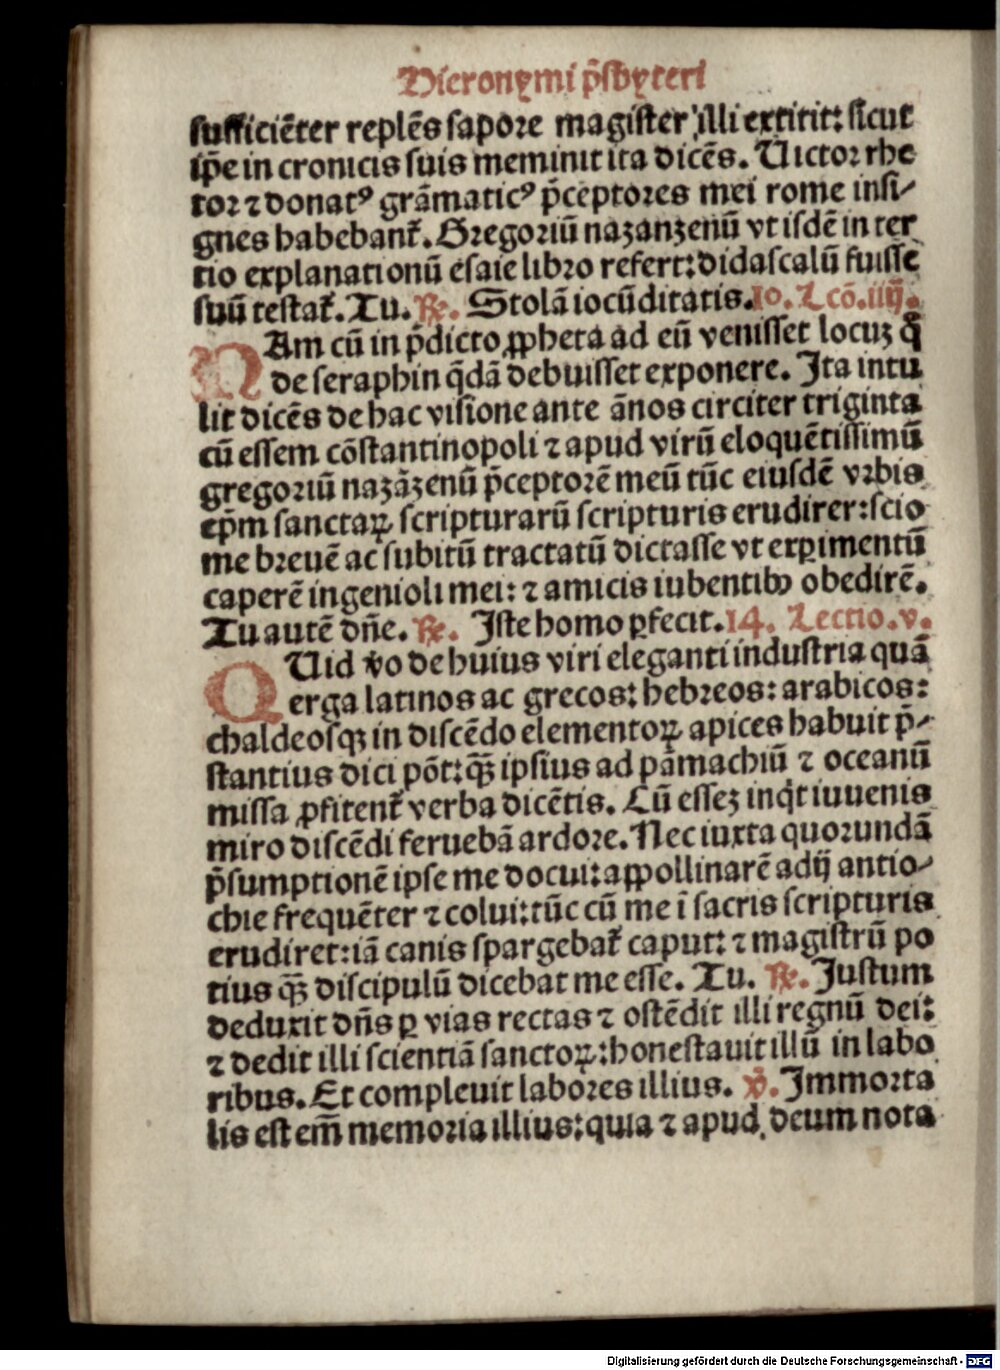 Hieronymi p̄sbyteri
sufficiēter replēs sapore magister illi extitit: sicut
ip̄e in cronicis suis meminit ita dicēs. Uictor rhe
tor ⁊ donatꝰ grāmaticꝰ p̄ceptores mei rome insi⸗
gnes habebant̄. Gregoriū nazanzenū vt isdē in ter
tio explanationū esaie libro refert: didascalū fuisse
suū testat̄. Tu. ℟. Stolā iocūditatis. 10. Lcō. iiij.
NAm cū in p̄dicto ꝓpheta ad eū venisset locuꝫ q̊
de seraphin q̄dā debuisset exponere. Ita intu
lit dicēs de hac visione ante ānos circiter triginta
cū essem cōstantinopoli ⁊ apud virū eloquētissimū
gregoriū nazāzenū p̄ceptorē meū tūc eiusdē vrbis
ep̄m sanctaꝝ scripturarū scripturis erudirer: scio
me breuē ac subitū tractatū dictasse vt exꝑimentū
caperē ingenioli mei: ⁊ amicis iubentibꝰ obedirē.
Tu autē dn̄e. ℟. Iste homo ꝑfecit. 14. Lectio. v.
QUid v̄o de huius viri eleganti industria quā
erga latinos ac grecos: hebreos: arabicos:
chaldeosqꝫ in discēdo elementoꝝ apices habuit p̄⸗
stantius dici pōt: qꝫ̄ ipsius ad pāmachiū ⁊ oceanū
missa ꝓfitent̄ verba dicētis. Cū esseꝫ inq̇t iuuenis
miro discēdi feruebā ardore. Nec iuxta quorundā
p̄sumptionē ipse me docui: aꝓpollinarē adij antio⸗
chie frequēter ⁊ colui: tūc cū me ī sacris scripturis
erudiret: iā canis spargebat̄ caput: ⁊ magistrū po
tius qꝫ̄ discipulū dicebat me esse. Tu. ℟. Justum
deduxit dn̄s ꝑ vias rectas ⁊ ostēdit illi regnū dei:
⁊ dedit illi scientiā sanctoꝝ: honestauit illū in labo
ribus. Et compleuit labores illius. ℣. Immorta
lis est em̄ memoria illius: quia ⁊ apud deum nota
Digitalisierung gefördert durch die Deutsche Forschungsgemeinschaft - DFG